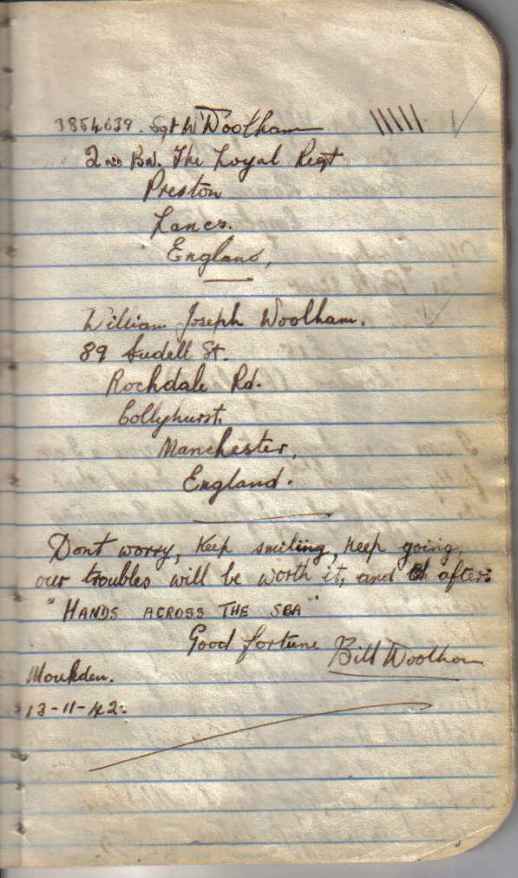 3854039. Sgt W Woolham
2ND BN. The Loyal Regt
Preston
Lancs.
England,
William Joseph Woolham.
89 Sudell St.
Rochdale Rd.
Collyhurst,
Manchester,
England.
Dont worry, Keep smiling, keep going,
our troubles will be worth it, and after:
"HANDS ACROSS THE SEA"
Good fortune
Bill Woolham
Moukden.
13-11-42.